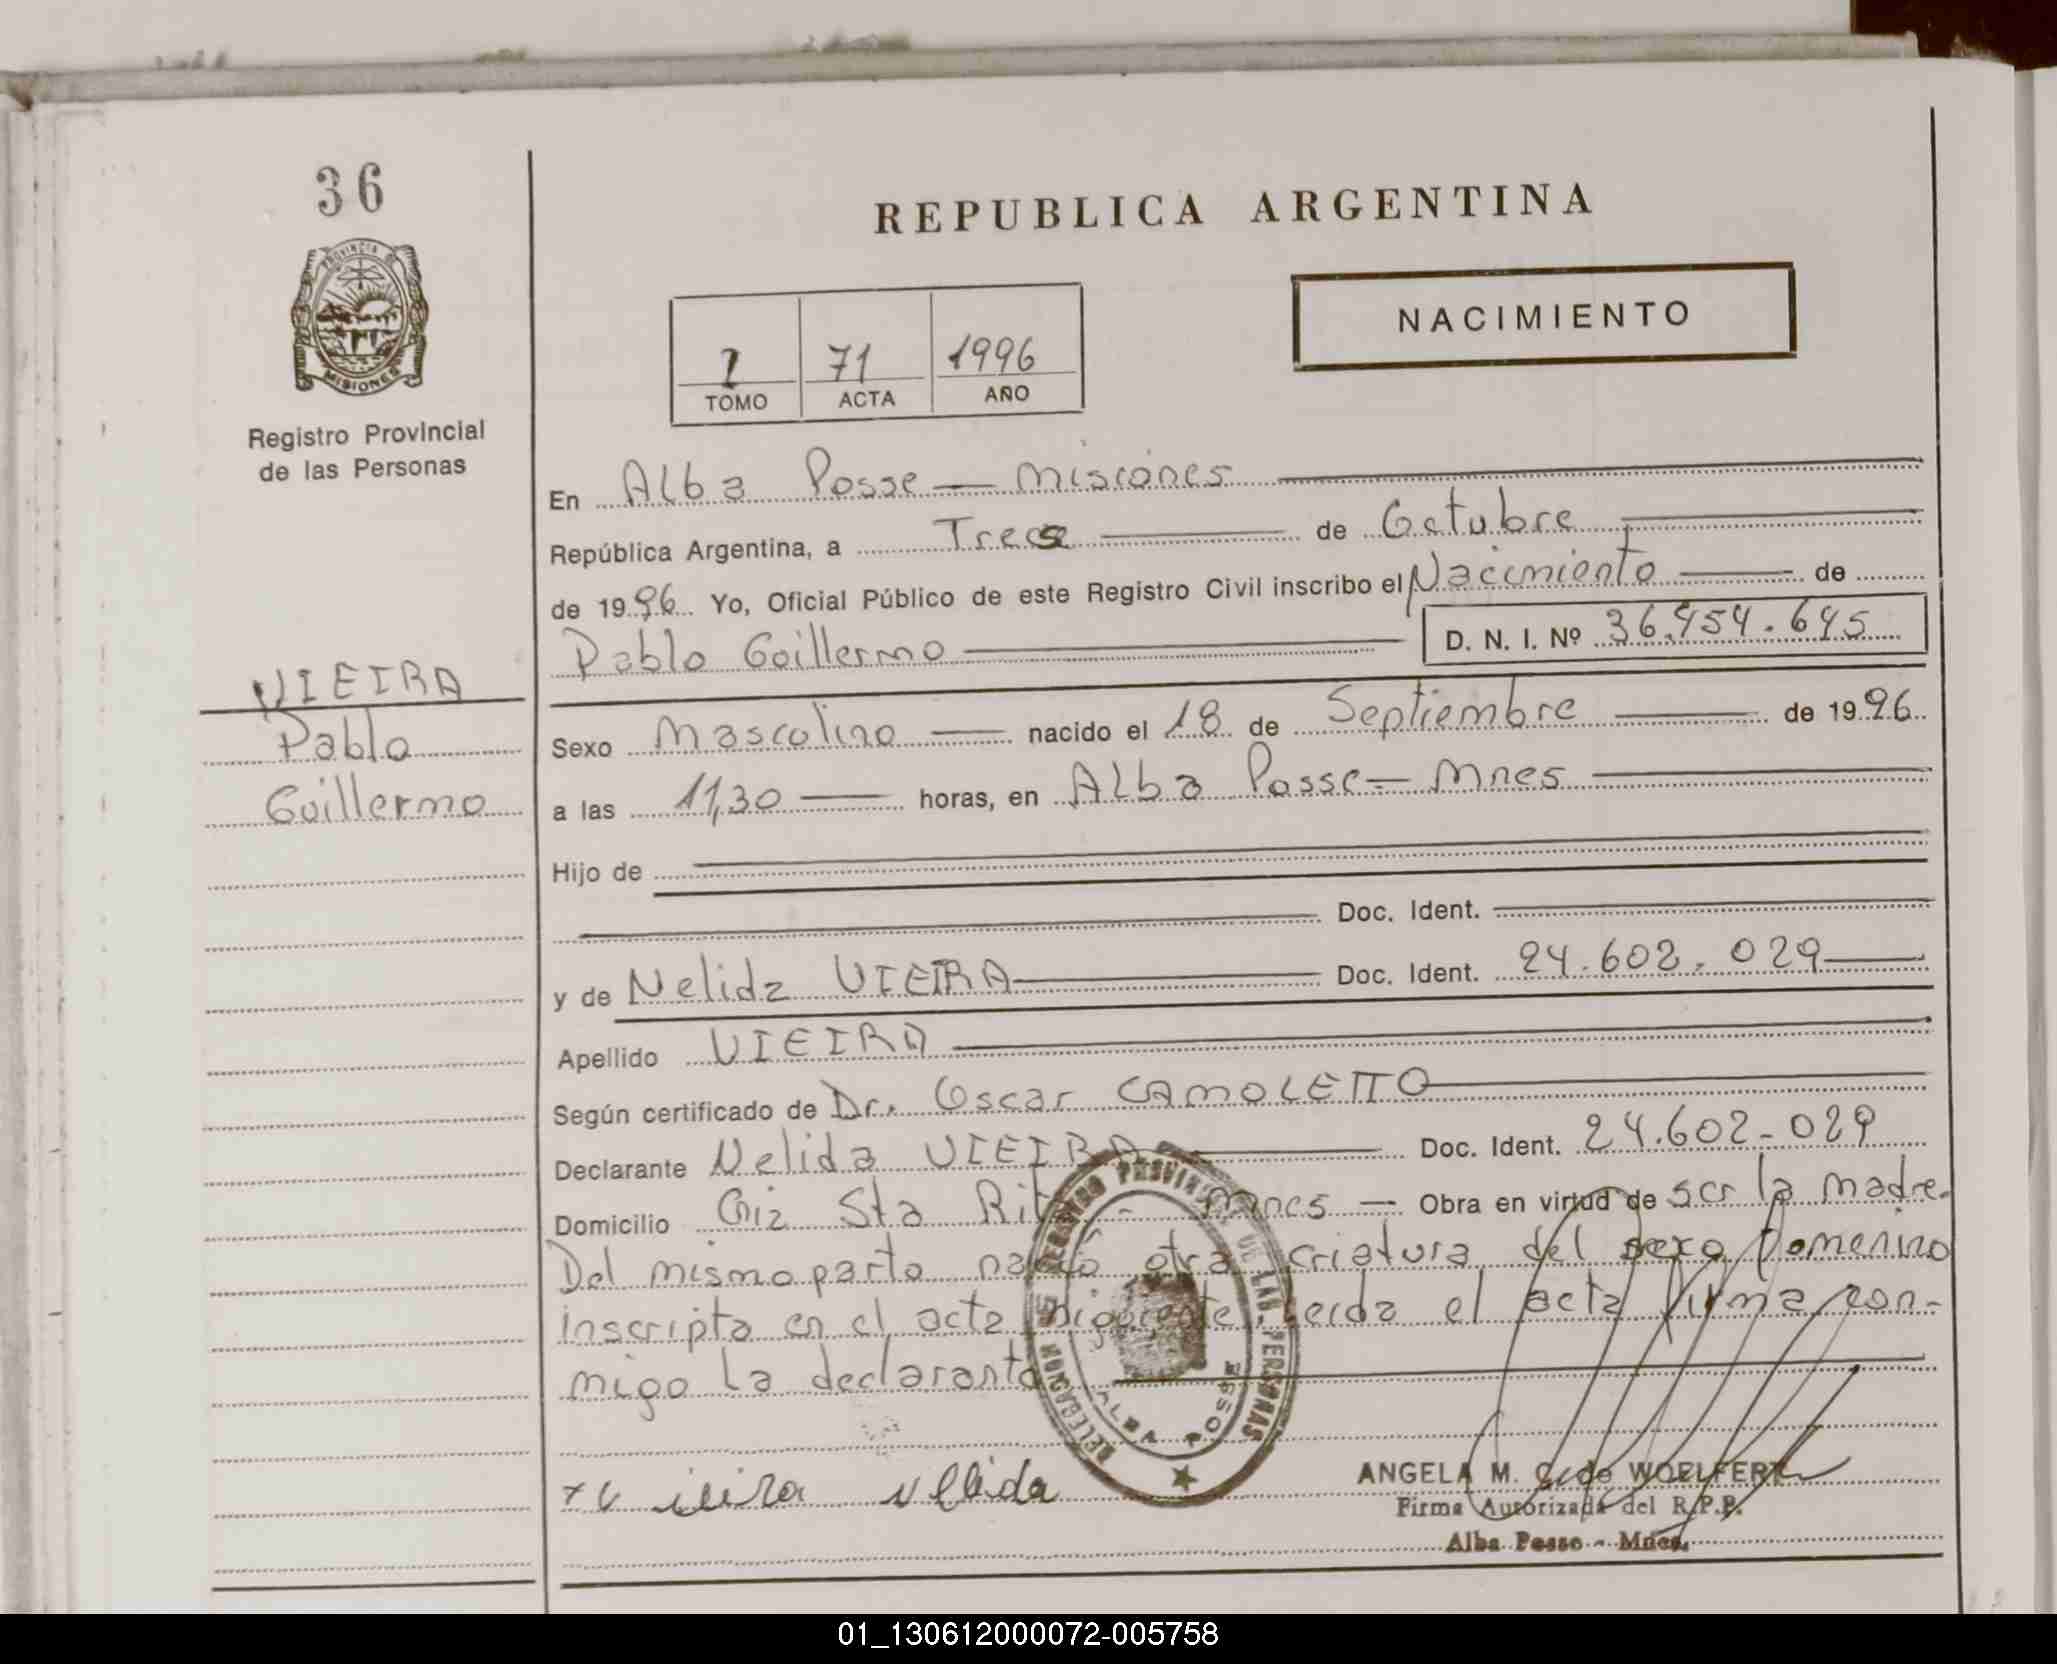 36
PROVINCIA DE
MISIONES
Registro Provincial
de las Personas
VIEIRA
Pablo
Guillermo
REPUBLICA ARGENTINA
NACIMIENTO
71 1996
TOMO ACTA AÑO
En Alba Posse — Misiones
República Argentina, a Trece de Octubre
de 1996 Yo, Oficial Público de este Registro Civil inscribo el Nacimiento — de
Pablo Guillermo — D. N. I. Nº 36.454.645
Sexo Masculino — nacido el 18 de Septiembre — de 1996
a las 11,30 — horas, en Alba Posse = Mnes
Hijo de
Doc. Ident.
y de Nelida VIEIRA — Doc. Ident. 24.602.029 —
Apellido VIEIRA
Según certificado de Dr. Oscar CAMOLETTO
Declarante Nelida VIEIRA — Doc. Ident. 24.602-029
Domicilio Sta Rita - Mnes — Obra en virtud de ser la madre.
Del mismo parto nació otra criatura del sexo Femenino
inscripta en el acta siguiente. Leida el acta firma con-
migo la declarante
DELEGACION REGISTRO PROVINCIAL DE LAS PERSONAS
ALBA POSSE
Vieira Nelida
ANGELA M. C. de WOELFERT
Firma Autorizada del R.P.P.
Alba Posse - Mnes.
01_130612000072-005758